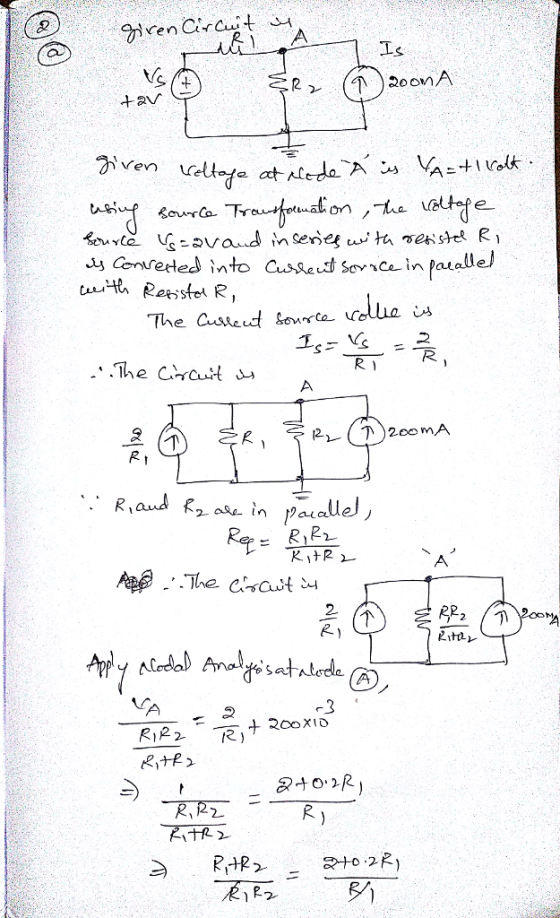 ②
ⓐ
given Circuit is,
R1 A Is
Vs + R2 ↑ 200mA
+2V
Given voltage at Node 'A' is VA=+1 volt.
using source Transformation, the voltage
source Vs=2V and in series with resistor R1
is Converted into Current source in parallel
with Resistor R1
The Current source value is
Is = Vs/R1 = 2/R1
∴ The Circuit is
A
2/R1 ↑ R1 R2 ↑ 200mA
∵ R1 and R2 are in parallel,
Req = R1R2/R1+R2
∴ The circuit is
'A'
2/R1 ↑ R1R2/R1+R2 ↑ 200mA
Apply Nodal Analysis at Node Ⓐ,
VA/(R1R2/R1+R2) = 2/R1 + 200x10^-3
⇒ 1/(R1R2/R1+R2) = 2+0.2R1/R1
⇒ R1+R2/R1R2 = 2+0.2R1/R1